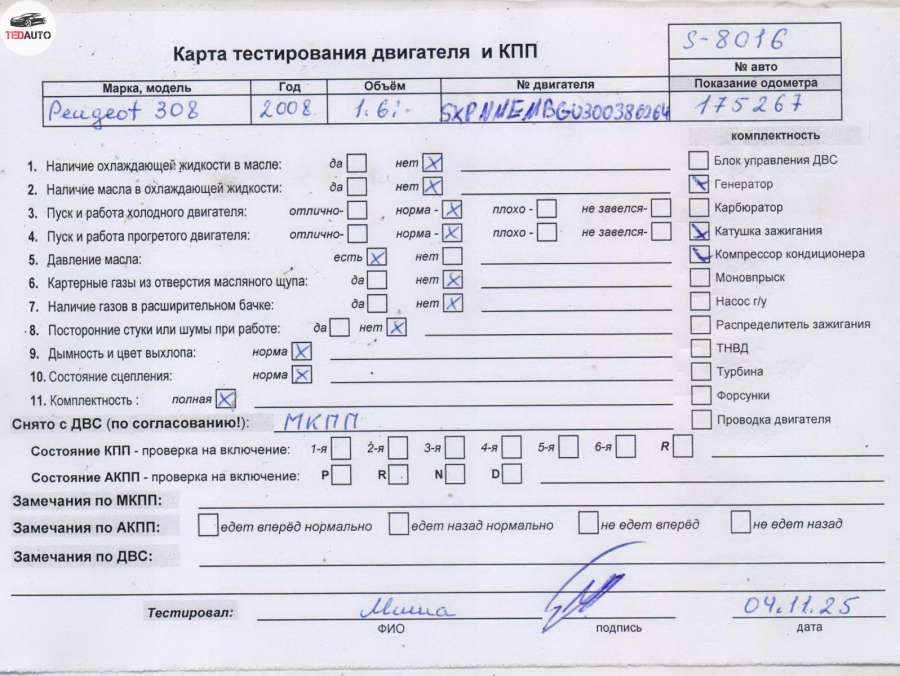 TEDAUTO
Карта тестирования двигателя и КПП
S-8016
№ авто
Марка, модель Год Объём № двигателя Показание одометра
Peugeot 308 2008 1.6i- 175267
комплектность
1. Наличие охлаждающей жидкости в масле: да нет X
Блок управления ДВС
2. Наличие масла в охлаждающей жидкости: да нет X
Генератор
3. Пуск и работа холодного двигателя: отлично- норма - X плохо - не завелся-
Карбюратор
4. Пуск и работа прогретого двигателя: отлично- норма - X плохо - не завелся-
Катушка зажигания
5. Давление масла: есть X нет
Компрессор кондиционера
6. Картерные газы из отверстия масляного щупа: да нет X
Моновпрыск
7. Наличие газов в расширительном бачке: да нет X
Насос г/у
8. Посторонние стуки или шумы при работе: да нет X
Распределитель зажигания
9. Дымность и цвет выхлопа: норма X
ТНВД
10. Состояние сцепления: норма X
Турбина
11. Комплектность : полная X
Форсунки
Снято с ДВС (по согласованию!): МКПП
Проводка двигателя
Состояние КПП - проверка на включение: 1-я 2-я 3-я 4-я 5-я 6-я R
Состояние АКПП - проверка на включение: P R N D
Замечания по МКПП:
Замечания по АКПП: едет вперёд нормально едет назад нормально не едет вперёд не едет назад
Замечания по ДВС:
Тестировал: Миша 04.11.25
ФИО подпись дата